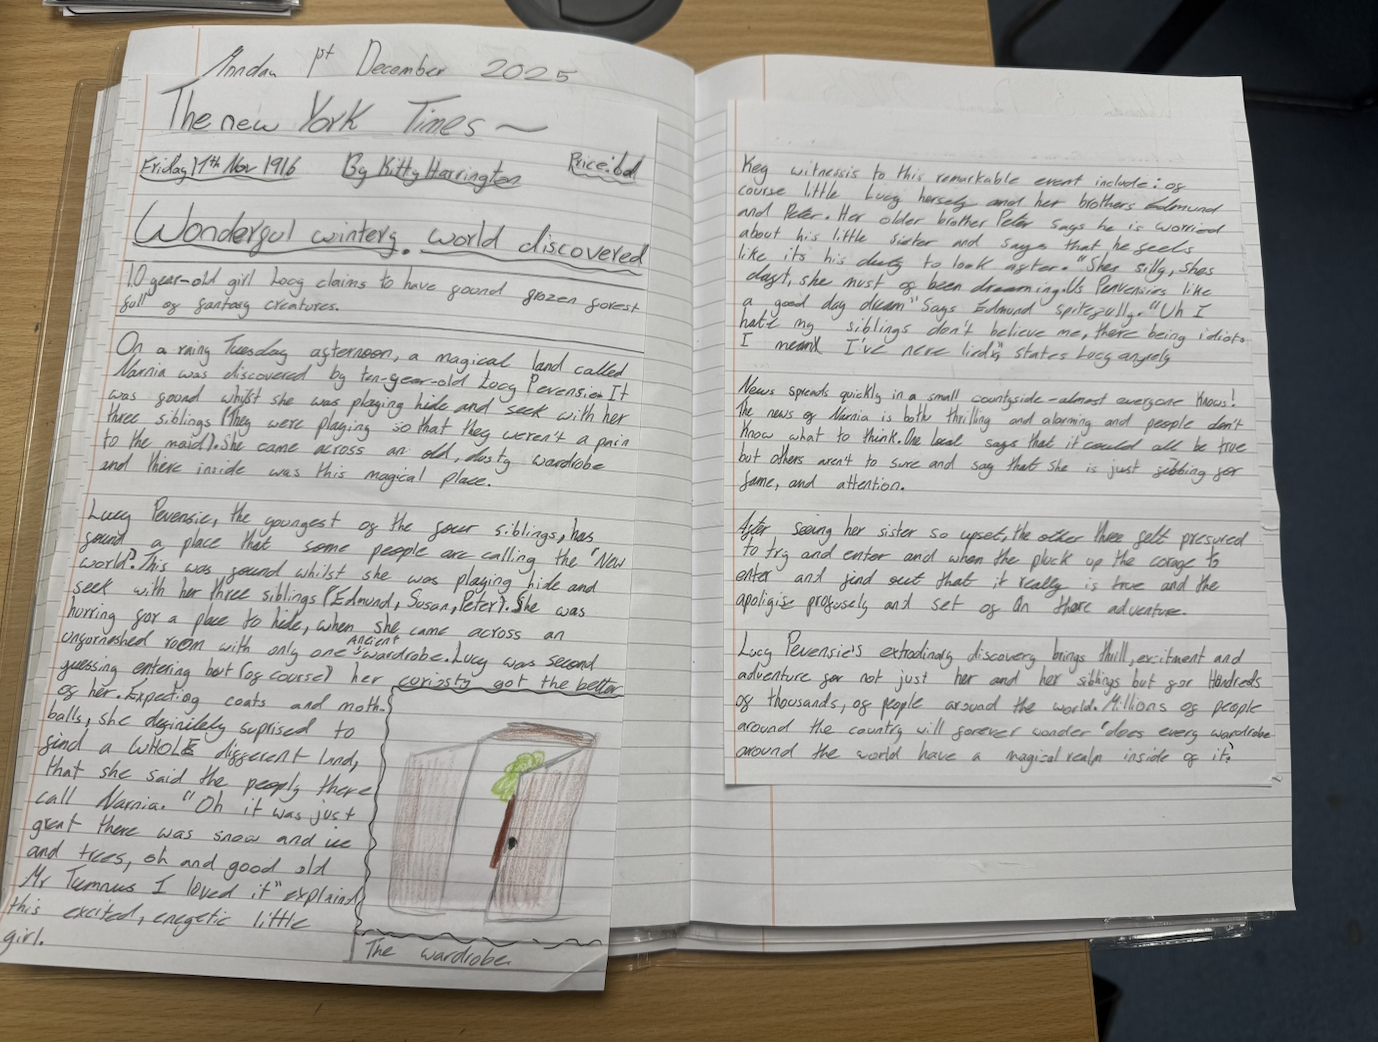 Monday 1st December 2025
The new York Times
Friday 17th Nov 1916 By Kitty Harrington Price: 6d
Wonderful wintery world discovered
10 year-old girl Lucy claims to have found frozen forest
full of fantasy creatures.
On a rainy Tuesday afternoon, a magical land called
Narnia was discovered by ten-year-old Lucy Pevensie. It
was found whilst she was playing hide and seek with her
three siblings (They were playing so that they weren't a pain
to the maid). She came across an old, dusty wardrobe
and there inside was this magical place.
Lucy Pevensie, the youngest of the four siblings, has
found a place that some people are calling the 'New
world'. This was found whilst she was playing hide and
seek with her three siblings (Edmund, Susan, Peter). She was
hurring for a place to hide, when she came across an
unfornished room with only one ancient wardrobe. Lucy was second
guessing entering but (of course) her curiosty got the better
of her. Expecting coats and moth-
balls, she definitely suprised to
find a WHOLE different land,
that she said the peoply there
call Narnia. "Oh it was just
great there was snow and ice
and trees, oh and good old
Mr Tumnus I loved it" explaind
this excited, enegetic little
girl.
The wardrobe
Key witnesis to this remarkable event include: of
course little Lucy herself and her brothers Edmund
and Peter. Her older brother Peter says he is worried
about his little sister and says that he feels
like its his duty to look after. "Shes silly, shes
daft, she must of been dreaming. Us Penvensies like
a good day dream" Says Edmund spitefully. "Uh I
hate my siblings don't believe me, there being idiots
I mean I've nere lied", states Lucy angrely
News spreads quickly in a small countyside - almost everyone knows!
The news of Narnia is both thrilling and alarming and people don't
know what to think. One local says that it could all be true
but others aren't to sure and say that she is just fibbing for
fame, and attention.
After seeing her sister so upset, the other three felt presured
to try and enter and when the pluck up the corage to
enter and find out that it really is true and the
apoligise profusely and set of on there adventure.
Lucy Pevensie's extrodinary discovery brings thrill, excitment and
adventure for not just her and her siblings but for Hundreds
of thousands, of people around the world. Millions of people
around the country will forever wonder 'does every wardrobe
around the world have a magical realm inside of it?'